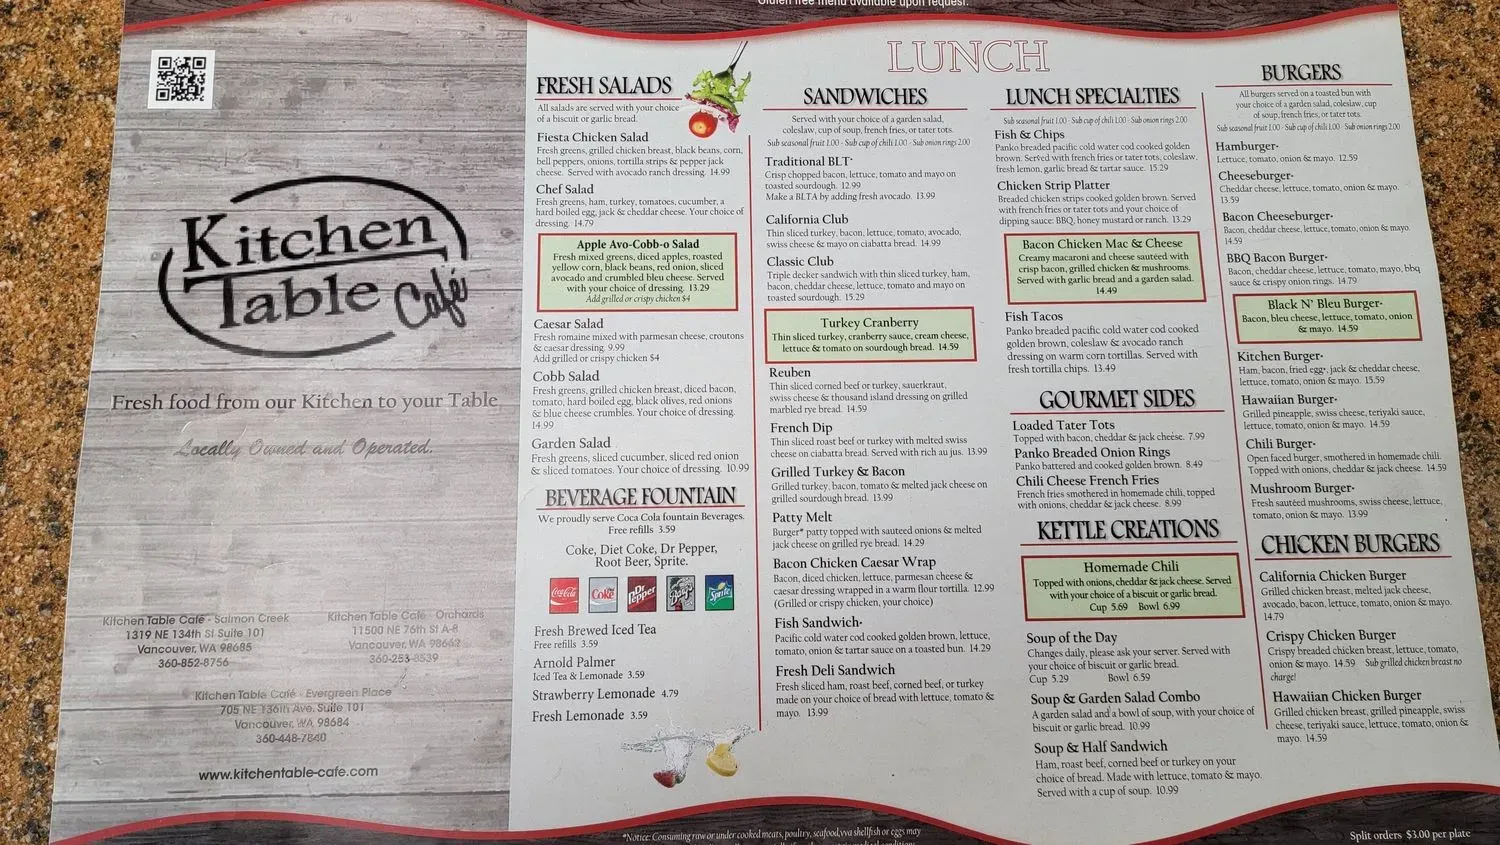 Gluten free menu available upon request.
Kitchen
Table
Café
Fresh food from our Kitchen to your Table
Locally Owned and Operated.
Kitchen Table Café - Salmon Creek
1319 NE 134th St Suite 101
Vancouver, WA 98685
360-852-8756
Kitchen Table Café - Orchards
11500 NE 76th St A-8
Vancouver, WA 98662
360-253-8539
Kitchen Table Café - Evergreen Place
705 NE 136th Ave. Suite 101
Vancouver, WA 98684
360-448-7840
www.kitchentable-cafe.com
LUNCH
FRESH SALADS
All salads are served with your choice
of a biscuit or garlic bread.
Fiesta Chicken Salad
Fresh greens, grilled chicken breast, black beans, corn,
bell peppers, onions, tortilla strips & pepper jack
cheese. Served with avocado ranch dressing. 14.99
Chef Salad
Fresh greens, ham, turkey, tomatoes, cucumber, a
hard boiled egg, jack & cheddar cheese. Your choice of
dressing. 14.79
Apple Avo-Cobb-o Salad
Fresh mixed greens, diced apples, roasted
yellow corn, black beans, red onion, sliced
avocado and crumbled bleu cheese. Served
with your choice of dressing. 13.29
Add grilled or crispy chicken $4
Caesar Salad
Fresh romaine mixed with parmesan cheese, croutons
& caesar dressing. 9.99
Add grilled or crispy chicken $4
Cobb Salad
Fresh greens, grilled chicken breast, diced bacon,
tomato, hard boiled egg, black olives, red onions
& blue cheese crumbles. Your choice of dressing.
14.99
Garden Salad
Fresh greens, sliced cucumber, sliced red onion
& sliced tomatoes. Your choice of dressing. 10.99
BEVERAGE FOUNTAIN
We proudly serve Coca Cola fountain Beverages.
Free refills 3.59
Coke, Diet Coke, Dr Pepper,
Root Beer, Sprite.
Coca-Cola
Coke
Dr Pepper
Barq's
Sprite
Fresh Brewed Iced Tea
Free refills 3.59
Arnold Palmer
Iced Tea & Lemonade 3.59
Strawberry Lemonade 4.79
Fresh Lemonade 3.59
SANDWICHES
Served with your choice of a garden salad,
coleslaw, cup of soup, french fries, or tater tots.
Sub seasonal fruit 1.00 - Sub cup of chili 1.00 - Sub onion rings 2.00
Traditional BLT*
Crisp chopped bacon, lettuce, tomato and mayo on
toasted sourdough. 12.99
Make a BLTA by adding fresh avocado. 13.99
California Club
Thin sliced turkey, bacon, lettuce, tomato, avocado,
swiss cheese & mayo on ciabatta bread. 14.99
Classic Club
Triple decker sandwich with thin sliced turkey, ham,
bacon, cheddar cheese, lettuce, tomato and mayo on
toasted sourdough. 15.29
Turkey Cranberry
Thin sliced turkey, cranberry sauce, cream cheese,
lettuce & tomato on sourdough bread. 14.59
Reuben
Thin sliced corned beef or turkey, sauerkraut,
swiss cheese & thousand island dressing on grilled
marbled rye bread. 14.59
French Dip
Thin sliced roast beef or turkey with melted swiss
cheese on ciabatta bread. Served with rich au jus. 13.99
Grilled Turkey & Bacon
Grilled turkey, bacon, tomato & melted jack cheese on
grilled sourdough bread. 13.99
Patty Melt
Burger* patty topped with sauteed onions & melted
jack cheese on grilled rye bread. 14.29
Bacon Chicken Caesar Wrap
Bacon, diced chicken, lettuce, parmesan cheese &
caesar dressing wrapped in a warm flour tortilla. 12.99
(Grilled or crispy chicken, your choice)
Fish Sandwich*
Pacific cold water cod cooked golden brown, lettuce,
tomato, onion & tartar sauce on a toasted bun. 14.29
Fresh Deli Sandwich
Fresh sliced ham, roast beef, corned beef, or turkey
made on your choice of bread with lettuce, tomato &
mayo. 13.99
LUNCH SPECIALTIES
Sub seasonal fruit 1.00 - Sub cup of chili 1.00 - Sub onion rings 2.00
Fish & Chips
Panko breaded pacific cold water cod cooked golden
brown. Served with french fries or tater tots, coleslaw,
fresh lemon, garlic bread & tartar sauce. 15.29
Chicken Strip Platter
Breaded chicken strips cooked golden brown. Served
with french fries or tater tots and your choice of
dipping sauce: BBQ, honey mustard or ranch. 13.29
Bacon Chicken Mac & Cheese
Creamy macaroni and cheese sautéed with
crisp bacon, grilled chicken & mushrooms.
Served with garlic bread and a garden salad.
14.49
Fish Tacos
Panko breaded pacific cold water cod cooked
golden brown, coleslaw & avocado ranch
dressing on warm corn tortillas. Served with
fresh tortilla chips. 13.49
GOURMET SIDES
Loaded Tater Tots
Topped with bacon, cheddar & jack cheese. 7.99
Panko Breaded Onion Rings
Panko battered and cooked golden brown. 8.49
Chili Cheese French Fries
French fries smothered in homemade chili, topped
with onions, cheddar & jack cheese. 8.99
KETTLE CREATIONS
Homemade Chili
Topped with onions, cheddar & jack cheese. Served
with your choice of a biscuit or garlic bread.
Cup 5.69 Bowl 6.99
Soup of the Day
Changes daily, please ask your server. Served with
your choice of biscuit or garlic bread.
Cup 5.29 Bowl 6.59
Soup & Garden Salad Combo
A garden salad and a bowl of soup, with your choice of
biscuit or garlic bread. 10.99
Soup & Half Sandwich
Ham, roast beef, corned beef or turkey on your
choice of bread. Made with lettuce, tomato & mayo.
Served with a cup of soup. 10.99
BURGERS
All burgers served on a toasted bun with
your choice of a garden salad, coleslaw, cup
of soup, french fries, or tater tots.
Sub seasonal fruit 1.00 - Sub cup of chili 1.00 - Sub onion rings 2.00
Hamburger*
Lettuce, tomato, onion & mayo. 12.59
Cheeseburger*
Cheddar cheese, lettuce, tomato, onion & mayo.
13.59
Bacon Cheeseburger*
Bacon, cheddar cheese, lettuce, tomato, onion & mayo.
14.59
BBQ Bacon Burger*
Bacon, cheddar cheese, lettuce, tomato, mayo, bbq
sauce & crispy onion rings. 14.79
Black N' Bleu Burger*
Bacon, bleu cheese, lettuce, tomato, onion
& mayo. 14.59
Kitchen Burger*
Ham, bacon, fried egg*, jack & cheddar cheese,
lettuce, tomato, onion & mayo. 15.59
Hawaiian Burger*
Grilled pineapple, swiss cheese, teriyaki sauce,
lettuce, tomato, onion & mayo. 14.59
Chili Burger*
Open faced burger, smothered in homemade chili.
Topped with onions, cheddar & jack cheese. 14.59
Mushroom Burger*
Fresh sautéed mushrooms, swiss cheese, lettuce,
tomato, onion & mayo. 13.99
CHICKEN BURGERS
California Chicken Burger
Grilled chicken breast, melted jack cheese,
avocado, bacon, lettuce, tomato, onion & mayo.
14.79
Crispy Chicken Burger
Crispy breaded chicken breast, lettuce, tomato,
onion & mayo. 14.59 Sub grilled chicken breast no
charge!
Hawaiian Chicken Burger
Grilled chicken breast, grilled pineapple, swiss
cheese, teriyaki sauce, lettuce, tomato, onion &
mayo. 14.59
*Notice: Consuming raw or under cooked meats, poultry, seafood, shellfish or eggs may
Split orders $3.00 per plate